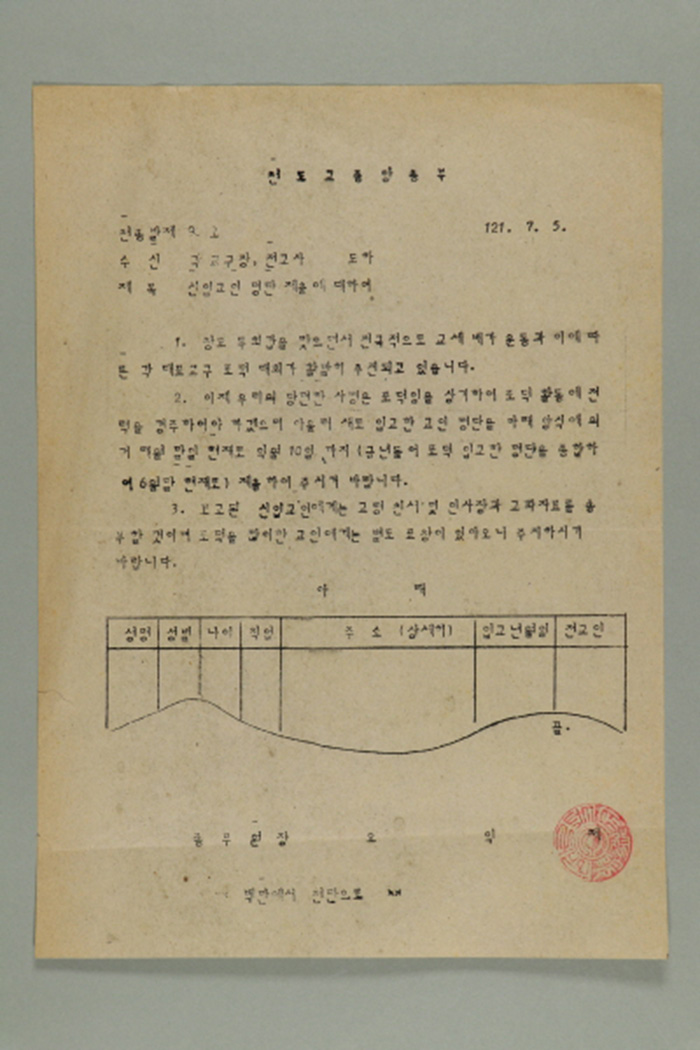 천 도 교 중 앙 총 부
천총발제 호
121. 7. 5.
수 신 각 교구장, 전교사 도하
제 목 신입교인 명단 제출에 대하여
1. 전국적으로 교세 배가 운동과 이에 따
른 각 대표교구 포덕 대회가 활발히 추진되고 있습니다.
2. 이제 우리의 당면한 사명은 포덕임을 상기하여 포덕 활동에 전
력을 경주하여야 하겠으며 아울러 새로 입교한 교인 명단을 아래 양식에 의
거 매월 말일 현재로 익월 10일 까지 (금년들어 포덕 입교한 명단을 종합하
여 6월말 현재로) 제출 하여 주시기 바랍니다.
3. 보고된 신입교인에게는 교령 친서 및 인사장과 교화자료를 송
부할 것이며 포덕을 많이한 교인에게는 별도 표창이 있아오니 주지하시기
바랍니다.
아 래
성명 성별 나이 직업 주 소 (상세히) 입교년월일 전교인
끝.
종 무 원 장 오 익 제
백만에서 천만으로